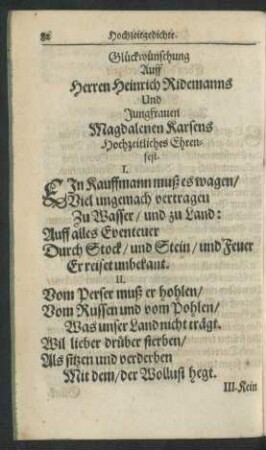 82 Hochzeitgedichte.
Glückwünschung
Auff
Herren Heinrich Ridemanns
Und
Jungfrauen
Magdalenen Karsens
Hochzeitliches Ehren-
fest.
I.
EIn Kauffmann muß es wagen/
Viel ungemach vertragen
Zu Wasser/ und zu Land:
Auff alles Eventeuer
Durch Stock/ und Stein/ und Feuer
Er reiset unbekant.
II.
Vom Perser muß er hohlen/
Vom Russen und vom Pohlen/
Was unser Land nicht trägt.
Wil lieber drüber sterben/
Als sitzen und verderben
Mit dem/ der Wollust hegt.
III. Kein